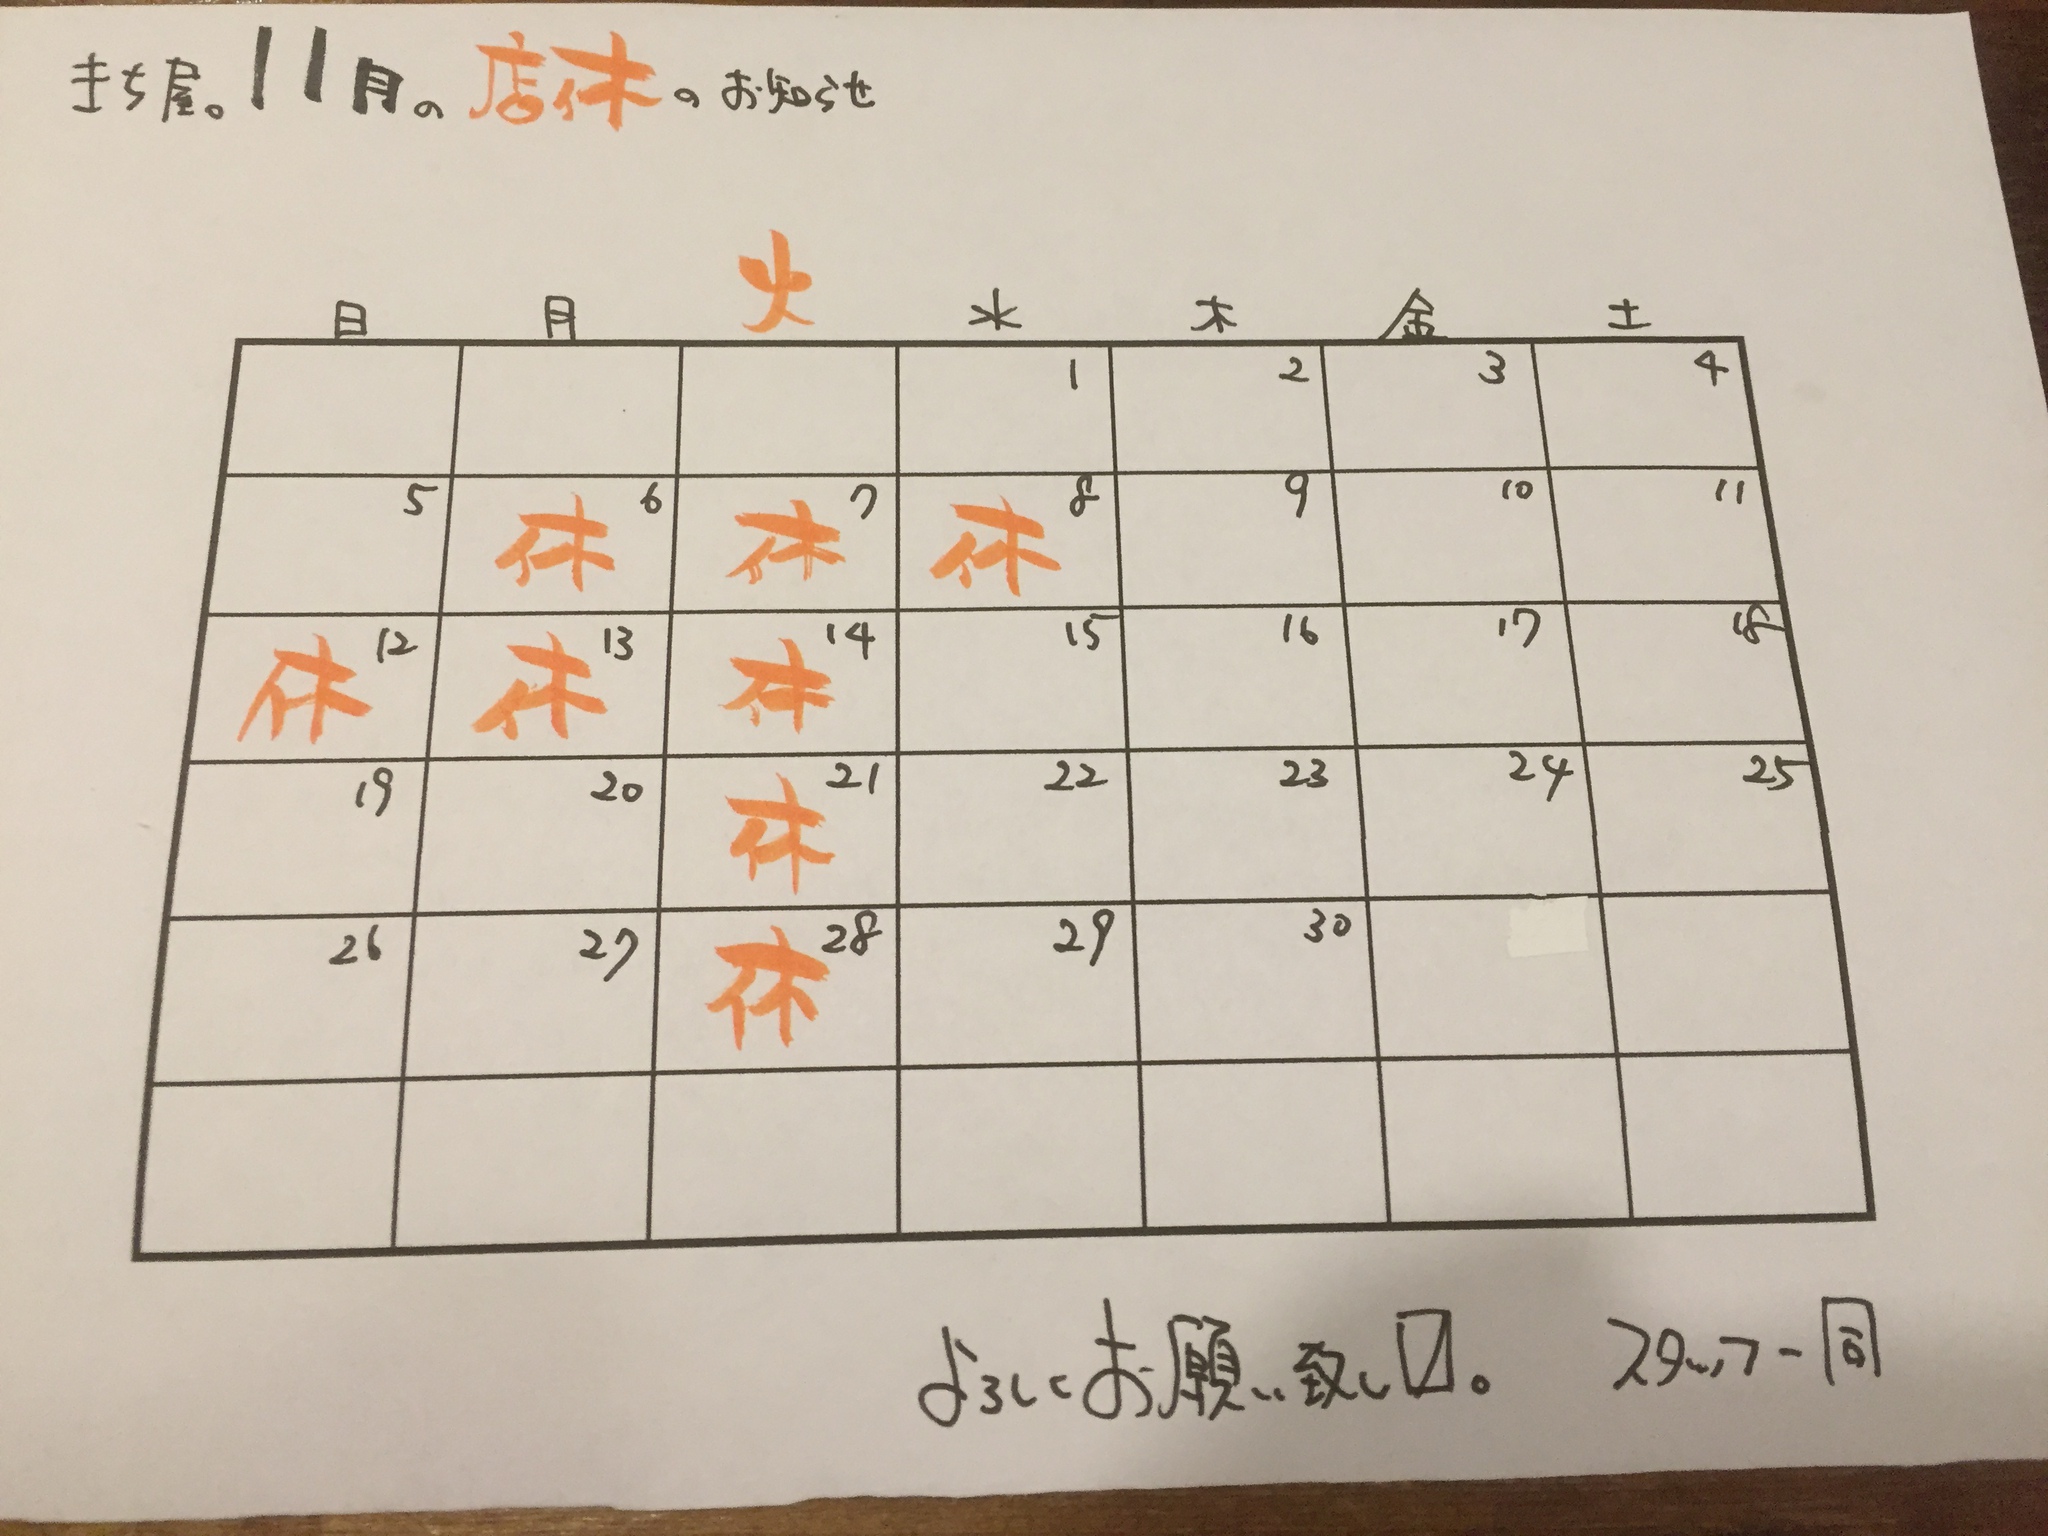 まち屋。11月の店休のお知らせ
日 月 火 水 木 金 土
1 2 3 4
5 6 休 7 休 8 休 9 10 11
12 休 13 休 14 休 15 16 17 18
19 20 21 休 22 23 24 25
26 27 28 休 29 30
よろしくお願い致し〼。 スタッフ一同